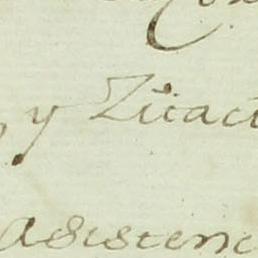 y Zitact
asistenc